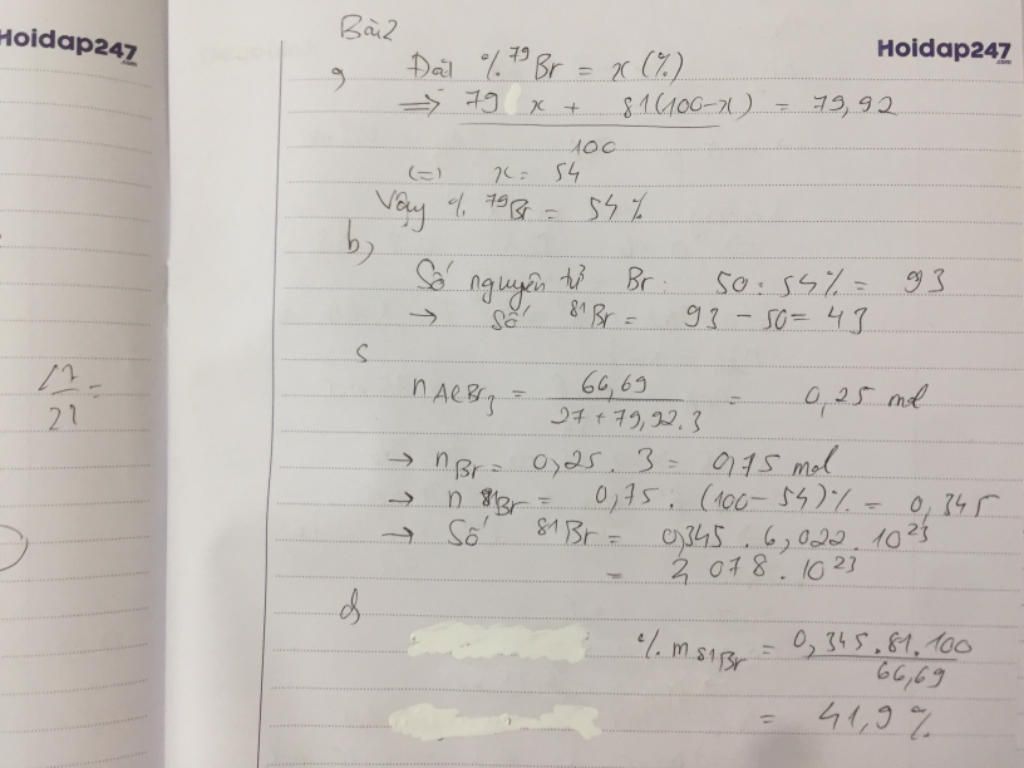 Hoidap247
.com
Hoidap247
.com
Bài 2
a, Đặt % ⁷⁹Br = x (%)
=> 79 x + 81(100-x) = 79,92
100
(=) x = 54
Vậy % ⁷⁹Br = 54 %
b,
Số nguyên tử Br: 50 : 54% = 93
→ Số ⁸¹Br = 93 - 50 = 43
c
n AlBr₃ = 66,69 / 27 + 79,92 . 3 = 0,25 mol
→ n Br = 0,25 . 3 = 0,75 mol
→ n ⁸¹Br = 0,75 . (100 - 54)% = 0,345
→ Số ⁸¹Br = 0,345 . 6,022 . 10²³
= 2,078 . 10²³
d,
% m ⁸¹Br = 0,345 . 81 . 100 / 66,69
= 41,9 %